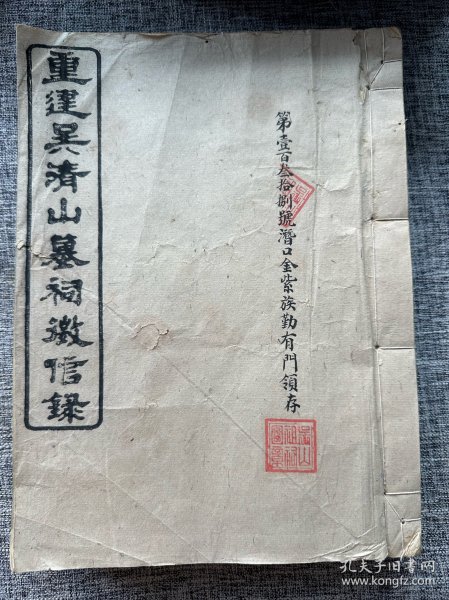 重建吴清山墓祠徵信录
第壹百叁拾捌號潛口金紫族勤有門領存
孔夫子旧书网
www.kongfz.com